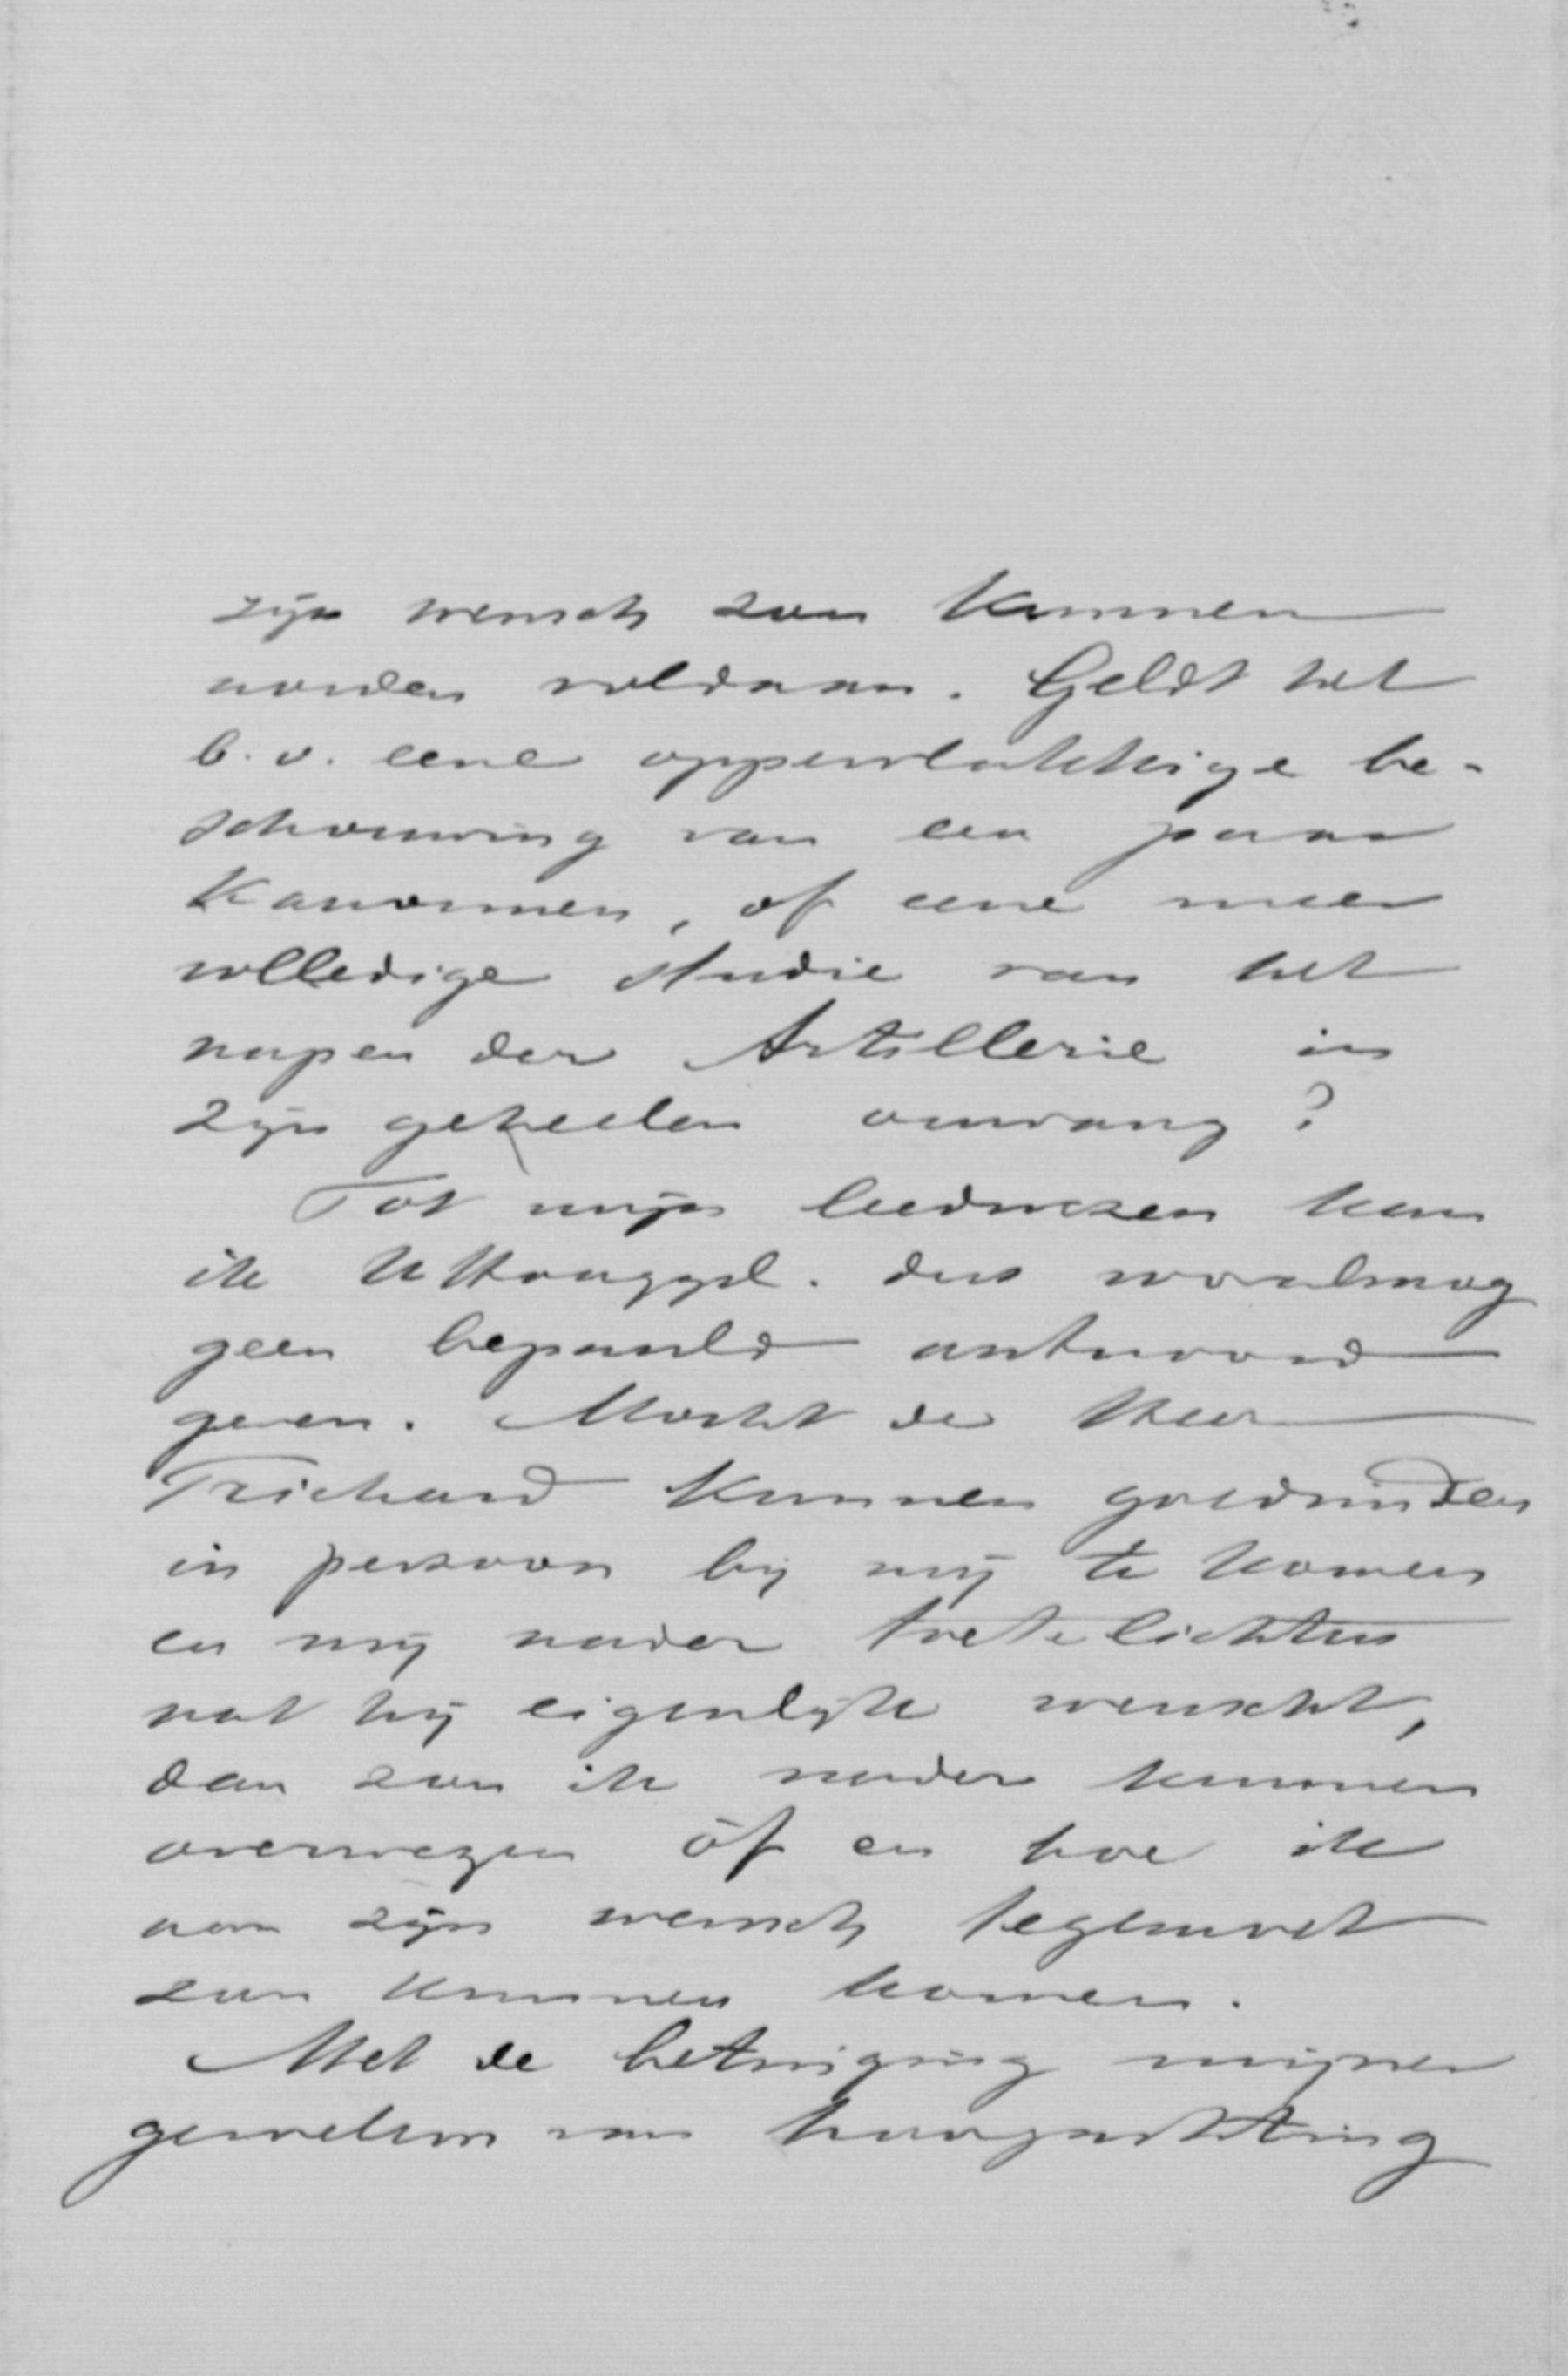 zijn wensch zou kunnen
worden voldaan. Geldt het
b.v. eene oppervlakkige be-
schouwing van een paar
kanonnen, of eene meer
volledige studie van het
wapen der Artillerie in
zijn geheelen omvang?
Tot mijn leedwezen kan
ik UHoogged. dus vooralsnog
geen bepaald antwoord
geven. Mocht de Heer
Trichard kunnen goedvinden
in persoon bij mij te komen
en mij nader toe te lichten
wat hij eigenlijk wenscht,
dan zou ik nader kunnen
overwegen òf en hoe ik
aan zijn wensch tegemoet
zou kunnen komen.
Met de betuiging mijner
gevoelens van hoogachting